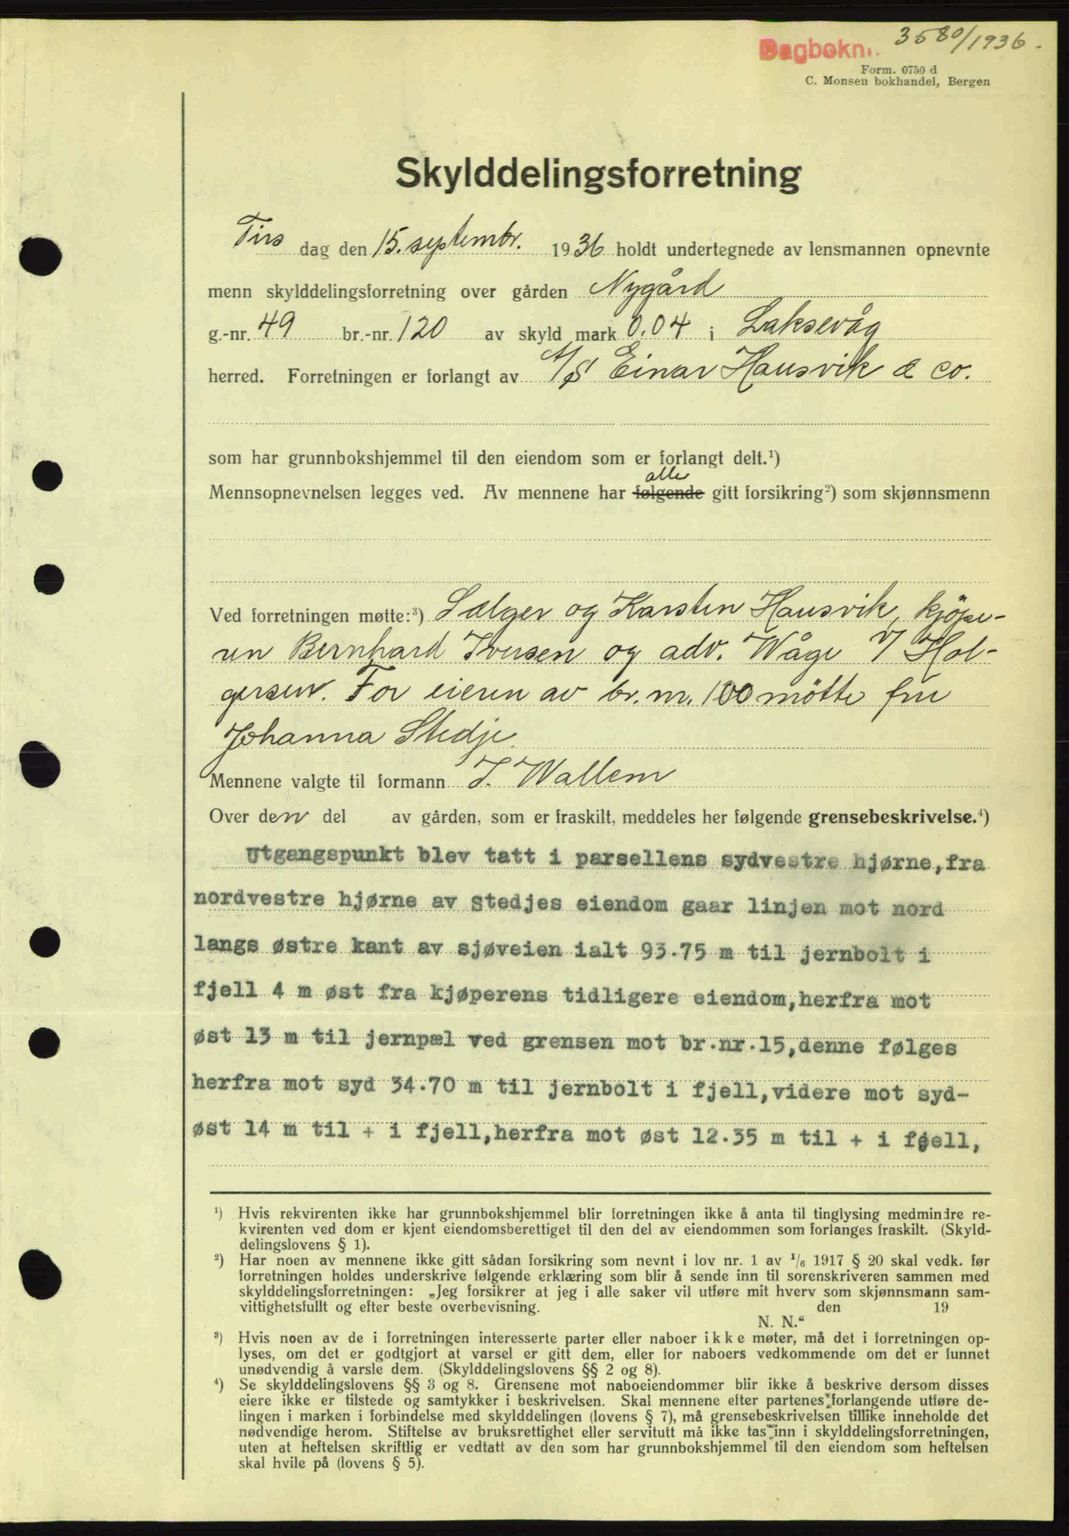 Dagboknr. 3580/1936.
Form. 0750 d
C. Monsen bokhandel, Bergen
Skylddelingsforretning
Tirs dag den 15. septembr. 1936 holdt undertegnede av lensmannen opnevnte
menn skylddelingsforretning over gården Nygård
g.-nr. 49 br.-nr. 120 av skyld mark 0.04 i Laksevåg
herred. Forretningen er forlangt av A/S Einar Hausvik & co.
som har grunnbokshjemmel til den eiendom som er forlangt delt.¹)
alle
Mennsopnevnelsen legges ved. Av mennene har følgende gitt forsikring²) som skjønnsmenn
Ved forretningen møtte:³) Sælger og Karsten Hausvik, kjöpe-
ren Bernhard Iversen og adv. Wåge v/ Hol-
gersen. For eieren av br. nr. 100 mötte fru
Johanna Stedje.
Mennene valgte til formann J. Wallem
Over den del av gården, som er fraskilt, meddeles her følgende grensebeskrivelse.⁴)
Utgangspunkt blev tatt i parsellens sydvestre hjørne, fra
nordvestre hjørne av Stedjes eiendom gaar linjen mot nord
langs østre kant av sjøveien ialt 93.75 m til jernbolt i
fjell 4 m øst fra kjøperens tidligere eiendom, herfra mot
øst 13 m til jernpæl ved grensen mot br.nr.15, denne følges
herfra mot syd 34.70 m til jernbolt i fjell, videre mot syd-
øst 14 m til + i fjell, herfra mot øst 12.35 m til + i fjell,
¹) Hvis rekvirenten ikke har grunnbokshjemmel blir forretningen ikke å anta til tinglysing medmindre re-
kvirenten ved dom er kjent eiendomsberettiget til den del av eiendommen som forlanges fraskilt. (Skyld-
delingslovens § 1).
²) Har noen av mennene ikke gitt sådan forsikring som nevnt i lov nr. 1 av ¹/₆ 1917 § 20 skal vedk. før
forretningen holdes underskrive følgende erklæring som blir å sende inn til sorenskriveren sammen med
skylddelingsforretningen: „Jeg forsikrer at jeg i alle saker vil utføre mit hverv som skjønnsmann sam-
vittighetsfullt og efter beste overbevisning. den 19
N. N.“
³) Hvis noen av de i forretningen interesserte parter eller naboer ikke møter, må det i forretningen op-
lyses, om det er godtgjort at varsel er gitt dem, eller for naboers vedkommende om det er funnet
unødvendig å varsle dem. (Skylddelingslovens §§ 2 og 8).
⁴) Se skylddelingslovens §§ 3 og 8. Grensene mot naboeiendommer blir ikke å beskrive dersom disses
eiere ikke er tilstede og samtykker i beskrivelsen. Skal mennene efter partenes forlangende utføre de-
lingen i marken i forbindelse med skylddelingen (lovens § 7), må grensebeskrivelsen tillike inneholde det
nødvendige herom. Stiftelse av bruksrettighet eller servitutt må ikke tas inn i skylddelingsforretningen,
uten at heftelsen skriftlig er vedtatt av den som har grunnbokshjemmel til den eiendom som heftelsen
skal hvile på (lovens § 5).